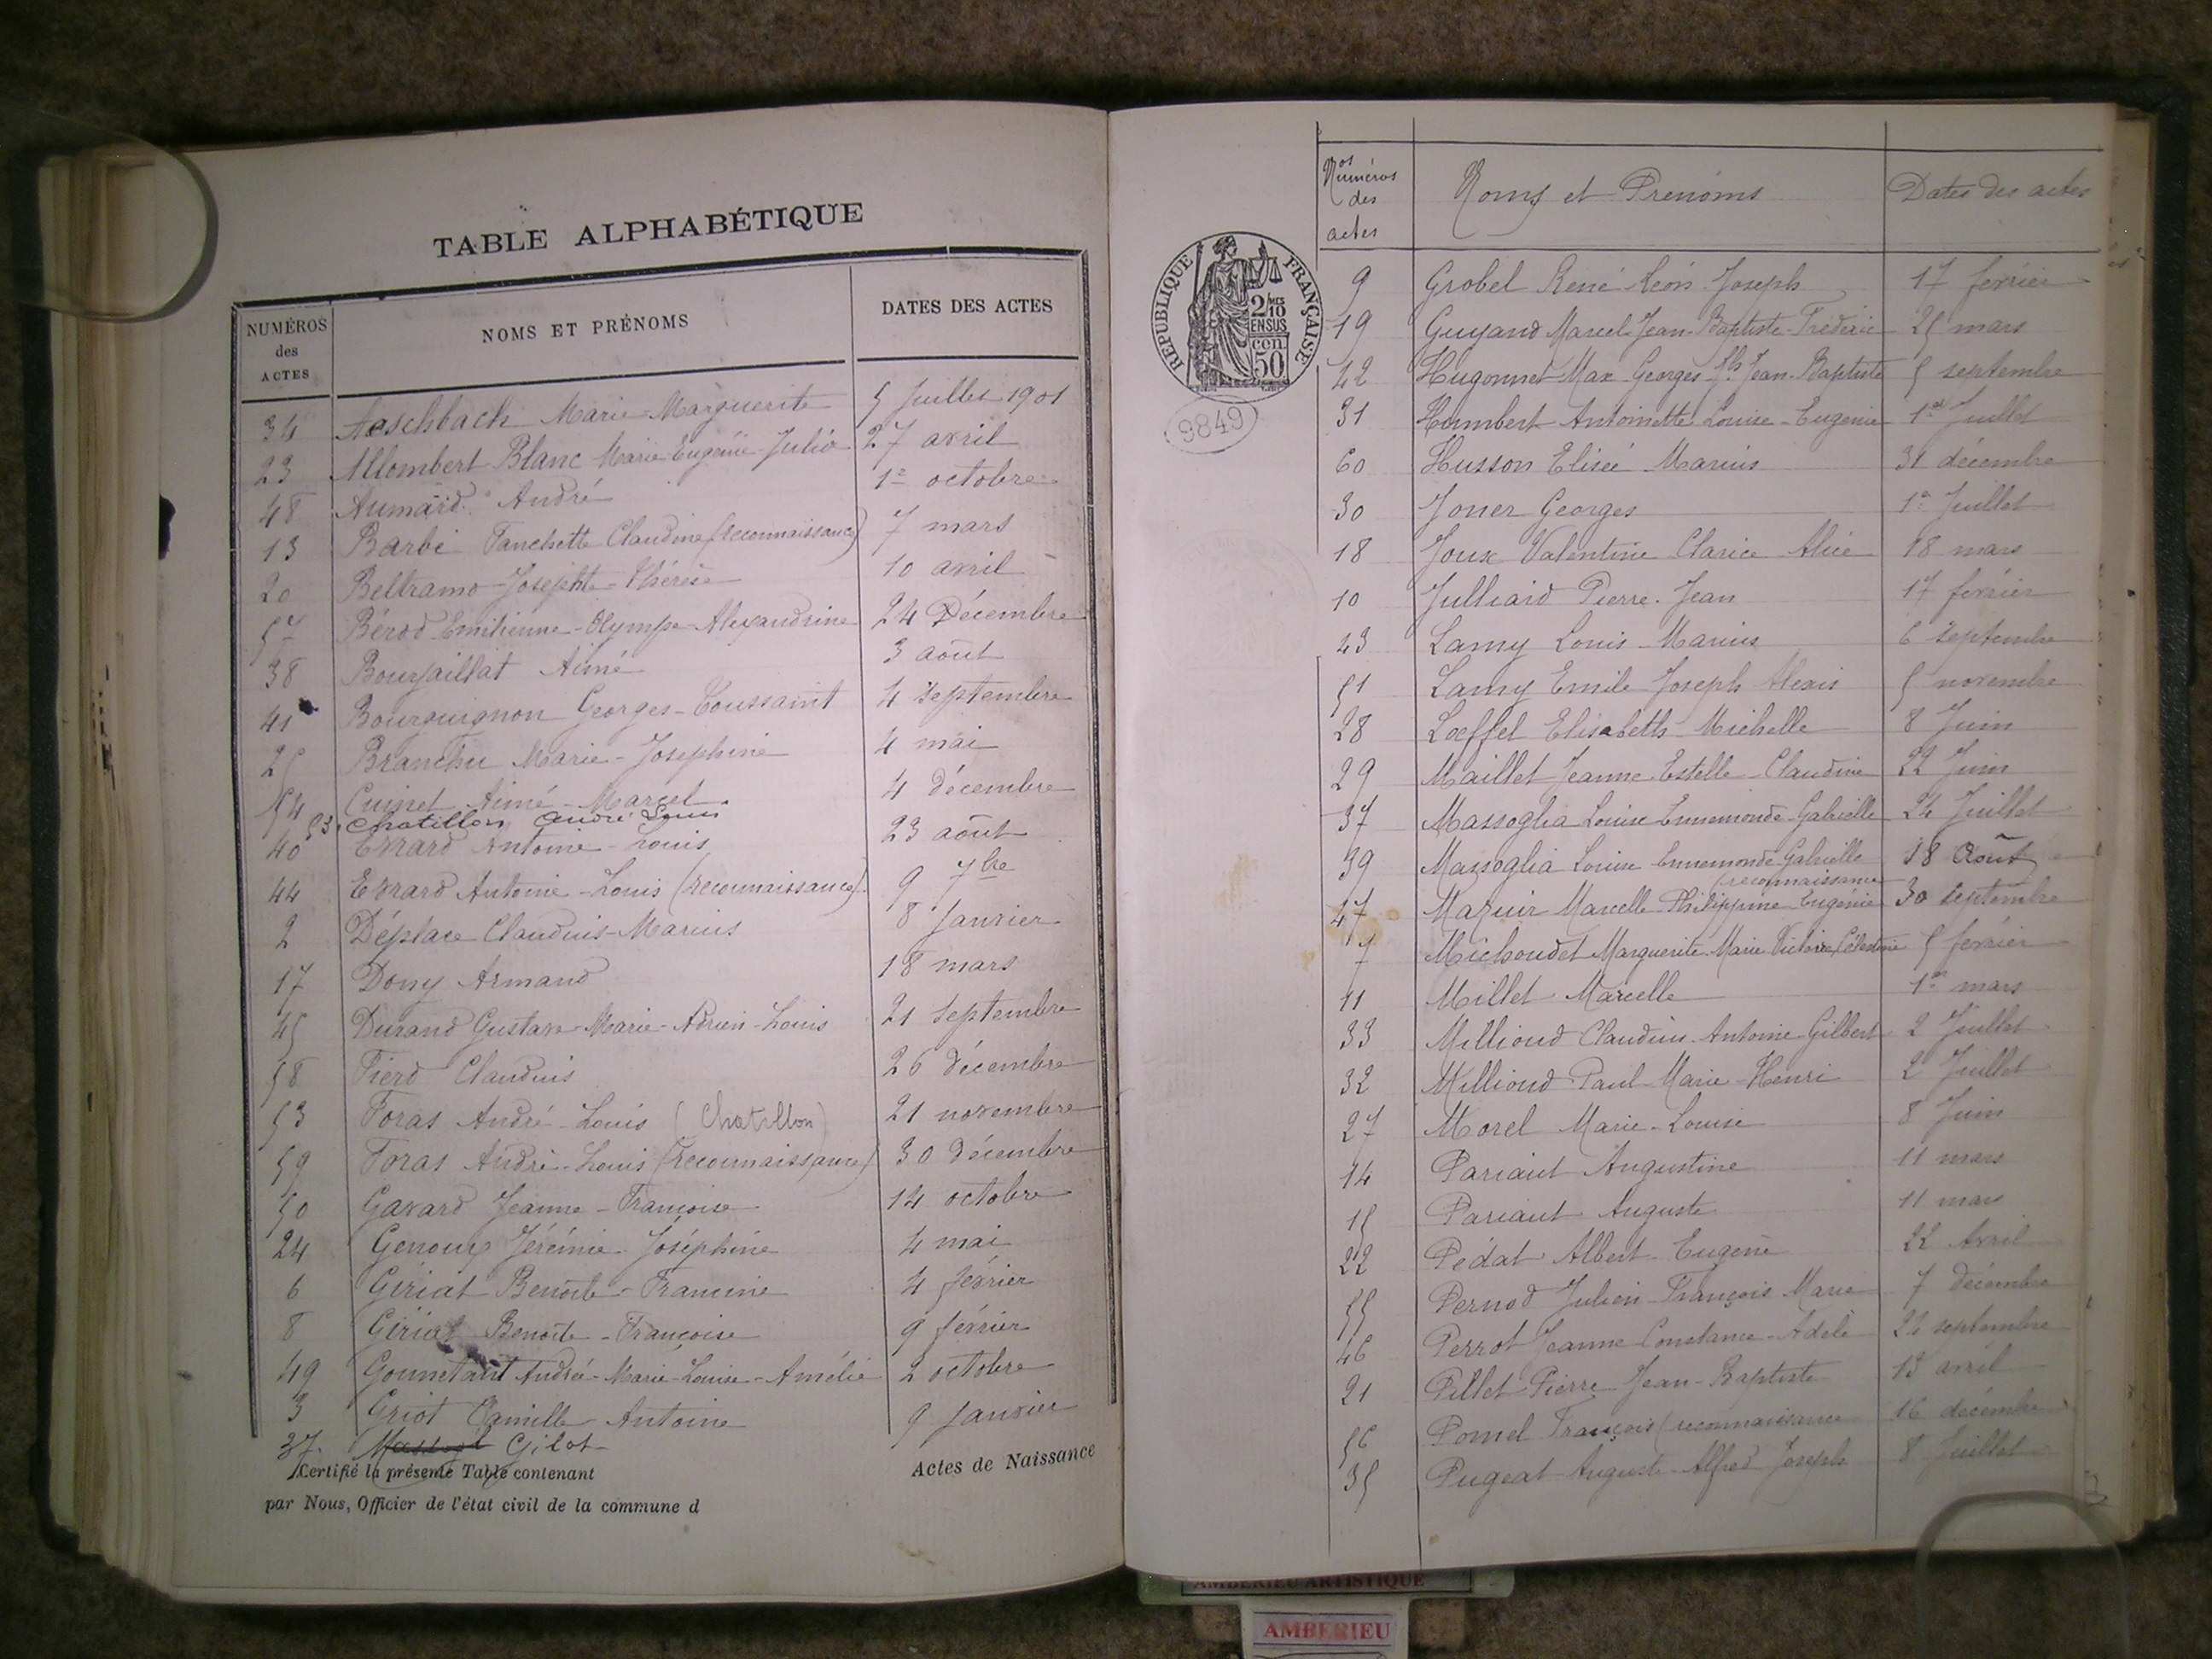 TABLE ALPHABÉTIQUE
NUMÉROS des ACTES NOMS ET PRÉNOMS DATES DES ACTES
34 Aeschbach Marie-Marguerite 5 Juillet 1901
23 Allombert Blanc Marie-Eugénie-Julia 27 avril
48 Aumard André 1er octobre
13 Barbe Fanchette Claudine (reconnaissance) 7 mars
20 Beltramo-Josephte-Thérèse 10 avril
57 Bérod Emilienne-Olympe-Alexandrine 24 Décembre
38 Bourjaillat Aimé 3 août
41 Bourguignon Georges-Toussaint 4 septembre
25 Branchu Marie-Josephine 4 mai
54 Cuinet Aimé-Marcel 4 décembre
53 Chatillon André Louis
40 Evrard Antoine-Louis 23 août
44 Evrard Antoine-Louis (reconnaissance) 9 7bre
2 Déplace Claudius-Marius 8 Janvier
17 Dony Armand 18 mars
45 Durand Gustave-Marie-Adrien-Louis 21 septembre
58 Fierd Claudius 26 décembre
53 Foras André-Louis (Chatillon) 21 novembre
59 Foras André-Louis (reconnaissance) 30 décembre
50 Gavard Jeanne-Françoise 14 octobre
24 Genoux Jérémie-Joséphine 4 mai
6 Gériat Benoîte-Francine 4 février
8 Gériat Benoîte-Françoise 9 février
49 Gounetant Andrée-Marie-Louise-Amélie 2 octobre
3 Griot Camille-Antoine 9 Janvier
37. Gilot
Certifié la présente Table contenant Actes de Naissance
par Nous, Officier de l'état civil de la commune d
RÉPUBLIQUE FRANÇAISE
2/10 EN SUS
50 cen
9849
Nos Numéros des actes Noms et Prénoms Dates des actes
9 Grobel René Léon Joseph 17 février
19 Guyand Marcel-Jean-Baptiste-Frédéric 25 mars
42 Hugonnet Max Georges Jh Jean-Baptiste 5 septembre
31 Humbert Antoinette Louise-Eugénie 1er Juillet
60 Husson Elisée Marius 31 décembre
30 Joner Georges 1er Juillet
18 Joux Valentine Clarice Alice 18 mars
10 Julliard Pierre-Jean 17 février
43 Lamy Louis-Marius 6 septembre
51 Lamy Emile Joseph Alexis 5 novembre
28 Loeffel Elisabeth-Michelle 8 Juin
29 Maillet Jeanne-Estelle-Claudine 22 Juin
37 Massoglia Louise Ennemonde-Gabrielle 24 Juillet
39 Massoglia Louise Ennemonde Gabrielle (reconnaissance 18 Août
47 Mazuir Marcelle-Philippine Eugénie 30 septembre
7 Michoudet Marguerite-Marie Victoire Célestine 5 février
11 Millet Marcelle 1er mars
33 Milliond Claudius-Antoine-Gilbert 2 Juillet
32 Milliond Paul-Marie-Henri 2 Juillet
27 Morel Marie-Louise 8 Juin
14 Pariaut Augustine 11 mars
15 Pariaut Auguste 11 mars
22 Pédat Albert-Eugène 22 Avril
55 Pernod Julien-François Marie 7 décembre
46 Perrot Jeanne Constance-Adèle 24 septembre
21 Pillet Pierre Jean-Baptiste 13 avril
56 Pomel François (reconnaissance 16 décembre
35 Pugeat Auguste-Alfred Joseph 8 Juillet
AMBERIEU ARTISTIQUE
AMBERIEU